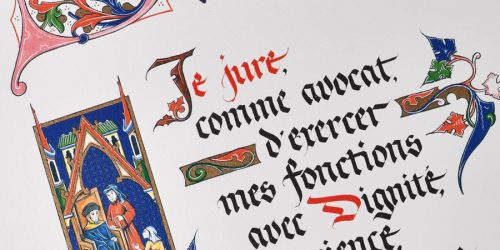 Je jure,
comme avocat,
d'exercer
mes fonctions
avec Dignité,